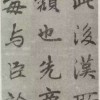 此後漢所
頹也先帝
每与臣論